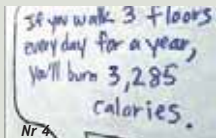 If you walk 3 floors
everyday for a year,
you'll burn 3,285
calories.
Nr 4